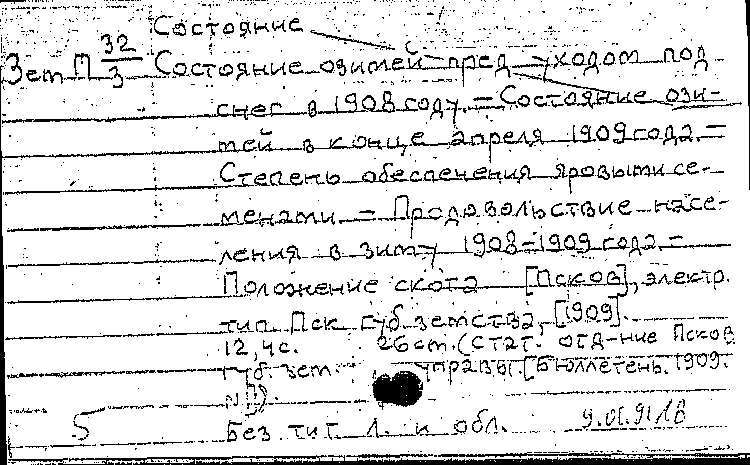 Состояние
Зем П 32/3 Состояние озимей пред уходом под
снег в 1908 году. = Состояние ози-
мей в конце апреля 1909 года. =
Степень обеспечения яровыми се-
менами. = Продовольствие насе-
ления в зиму 1908-1909 года. =
Положение скота [Псков], электр.
тип. Пск. губ. земства, [1909].
12, 4 с. 26 см. (Стат. отд-ние Псков
губ. зем. управы. [Бюллетень. 1909.
5 Без тит. л. и обл.